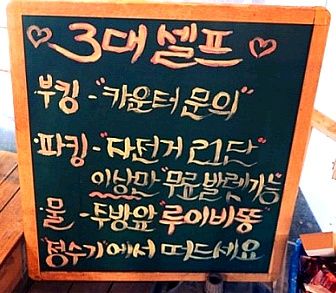 ♡ 3대 셀프 ♡
부킹 - "카운터 문의"
파킹 - "자전거 21단"
이상만 "무료 발렛가능"
물 - 주방앞 "루이비똥"
"정수기"에서 떠드세요